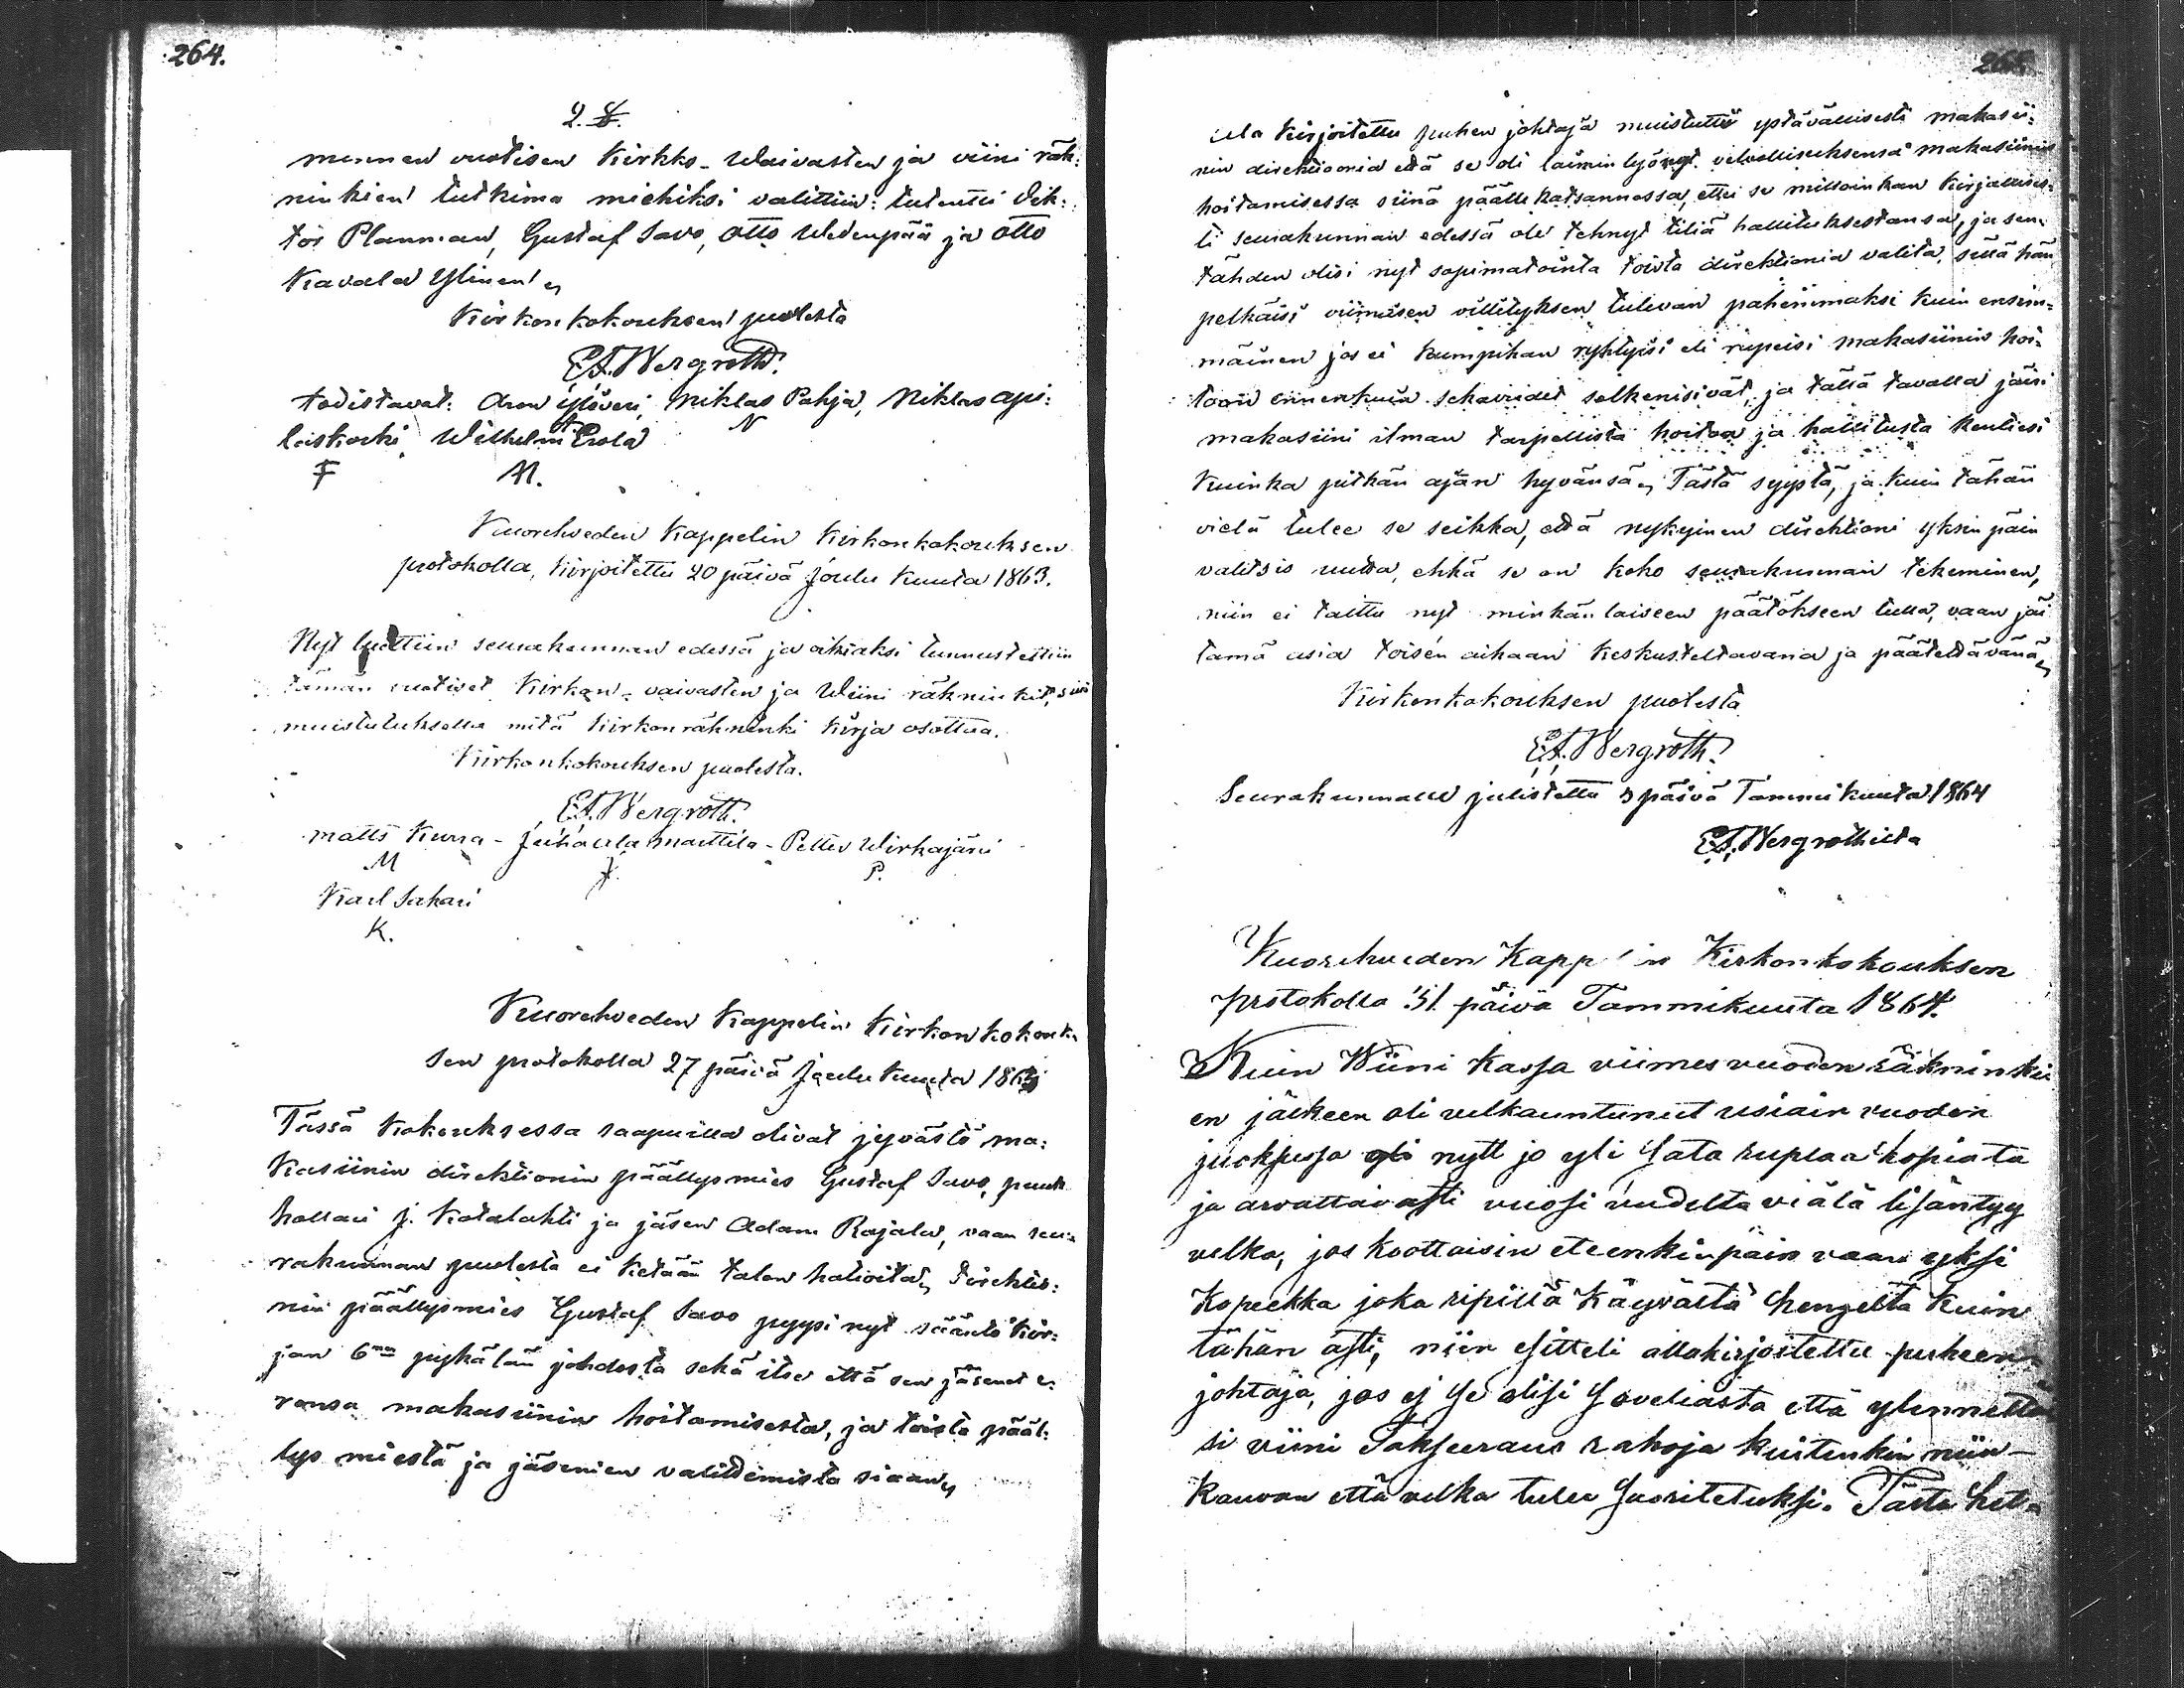 264.
2. §.
mennen vuotisen Kirkko- Waivasten ja viini räk-
ninkien tutkimo miehiksi valittiin: tutentti Vik-
tor Planman, Gustaf Savo, Otto Wedenpää ja Otto
Kavala Ylinen
Kirkonkokouksen puolesta
E.A. Wergroth.
todistavat: Aron Ylöveri, Niklas Pahja, Niklas Api-
laiskorki, Wilhelm Erola
N
F M.
Kuorehveden Kappelin Kirkonkokouksen
protokolla, kirjoitettu 20 päivä Joulu Kuuta 1863.
Nyt luettiin seurakunnan edessä ja oikiaksi tunnustettiin
tämän vuotiset Kirkon- vaivasten ja Wiini räkninkit, sillä
muistutuksella mitä Kirkonräkninki kirja osottaa.
Kirkonkokouksen puolesta.
E.A. Wergroth.
Matts Kurra - Juha Ala Marttila - Petter Wirkajärvi
M J. P.
Karl Sahari
K.
Kuorehveden Kappelin Kirkon kokouk-
sen protokolla 27 päivä Joulu Kuuta 1863
Tässä Kokouksessa saapuilla olivat jyvästö ma-
kasiinin direktionin päällysmies Gustaf Savo, puuk
hollari J. Kotalahti ja jäsen Adam Rajala, vaan seu-
rakunnan puolesta ei ketään talon haltioita, Direktio-
nin päällysmies Gustaf Savo pyysi nyt sääntö kir-
jan 6nen pykälän johdosta sekä itse että sen jäsenet e-
ronsa makasiinin hoitamisesta, ja toista pääl-
lys miestä ja jäsenien valittemista siaan,
265.
Ala kirjoitettu puhen johtaja muistutti ystävällisesti makasii-
nin direktioonia että se oli laimin lyönyt velvollisuksensa makasiinin
hoitamisessa siinä päälle katsannossa, ettei se milloinkaan kirjallises-
ti seurakunnan edessä ole tehnyt tiliä hallituksestansa, ja sen-
tähden olisi nyt sopimatointa toista direktionia valita, sillä hän
pelkäisi viimäisen villityksen tulevan pahemmaksi kuin ensim-
mäinen jos ei kumpikan ryhtyisi eli rupeisi makasiinin hoi-
toon ennenkuin sekaviudet selkenisivät, ja tällä tavalla jäisi
makasiini ilman tarpellista hoitoa ja hallitusta kenties
kuinka pitkän ajan hyvänsä, Tästä syystä, ja kuin tähän
vielä tulee se seikka, että nykyinen direktioni yksin päin
valitsis uutta, ehkä se on koko seurakunnan tekeminen,
niin ei taittu nyt minkän laiseen päätökseen tulla, vaan jäi
tämä asia toisen aikaan keskusteltavana ja päätettävänä,
Kirkonkokouksen puolesta
E.A. Wergroth.
Seurakunnalle julistettu 3 päivä Tammikuuta 1864
E.A. Wergrothilta
Kuorehveden Kapp in Kirkonkokouksen
protokolla 31 päivä Tammikuuta 1864.
Kuin Wiini Kassa viimes vuoden räkninki
en jälkeen oli velkauntunut usiain vuoden
juoksussa yli nytt jo yli Sata ruplaa kopiata
ja arvattavasti vuosi vudelta viälä lisäntyy
velka, jos koottaisin eteenkinpäin vaan yksi
Kopeekka joka ripillä käyvältä hengeltä Kuin
tähän asti, niin esitteli allakirjoitettu puheen-
johtaja, jos ej se olisi soveliasta että ylennettä
si viini Takseeraus rahoja kuitenkin niin-
kauvan että velka tulee suoritetuksi. Tästä het-